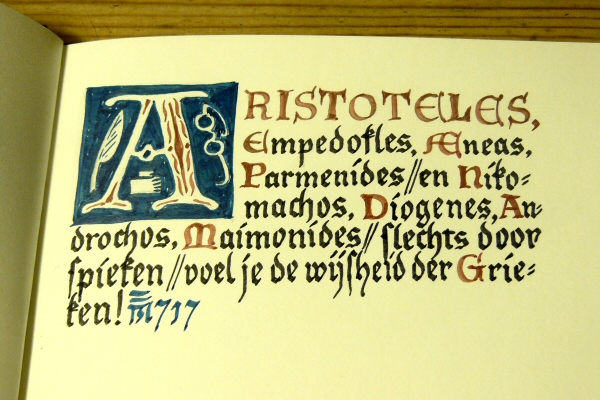 ARISTOTELES,
Empedokles, Æneas,
Parmenides//en Niko=
machos, Diogenes, An=
drochos, Maimonides//slechts door
spieken//voel je de wijsheid der Grie=
ken! 717